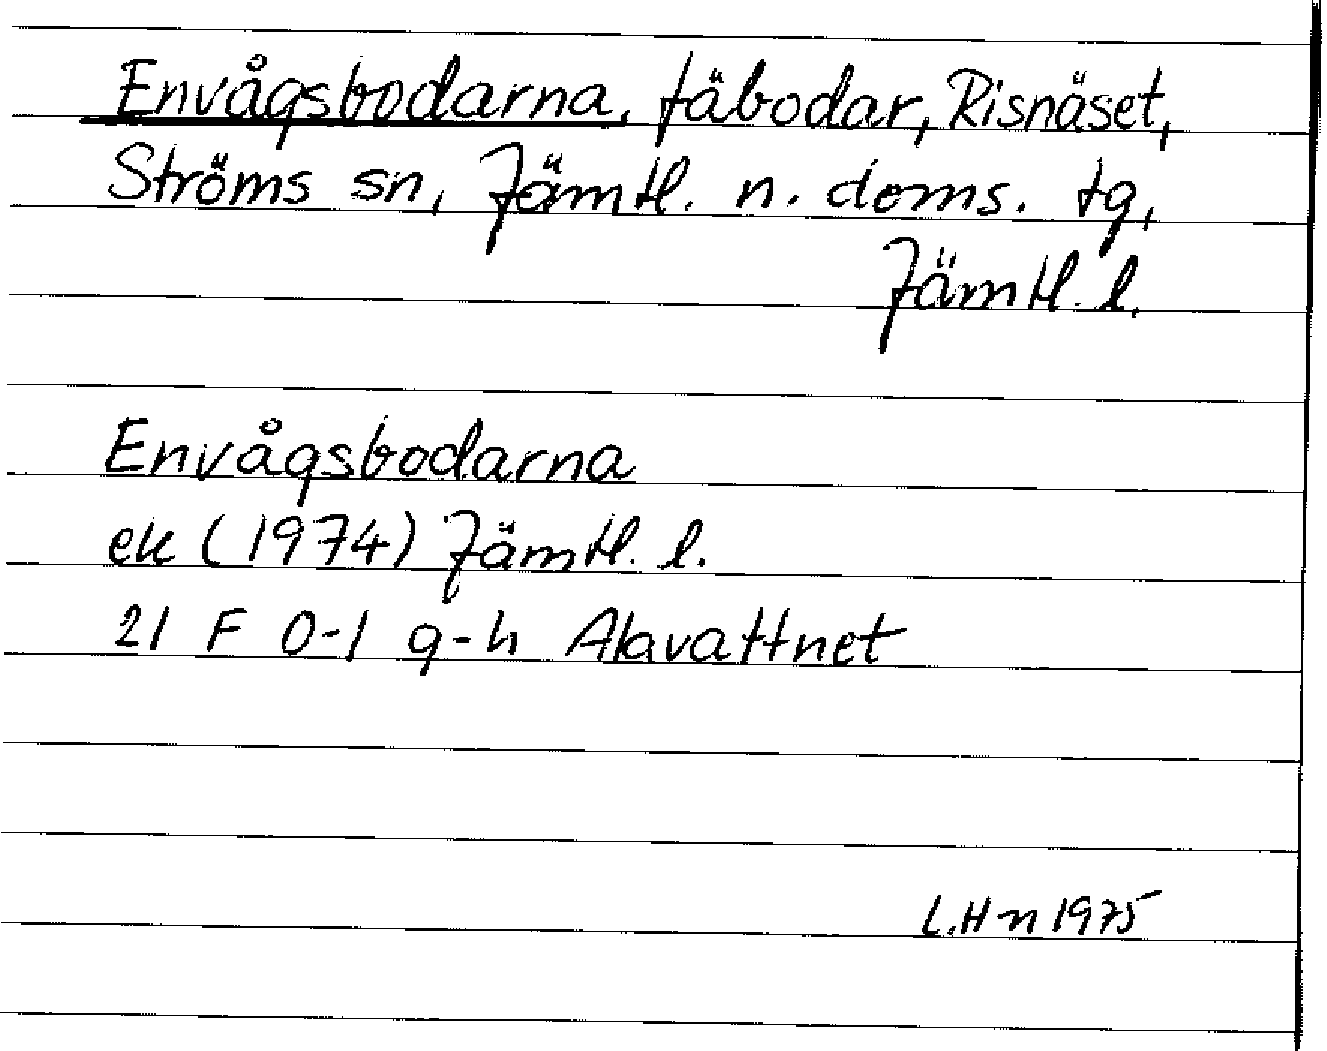 Envågsbodarna, fäbodar, Risnäset,
Ströms sn, Jämtl. n. doms. tg,
Jämtl. l.
Envågsbodarna
ek (1974) Jämtl. l.
21 F 0-1 g-h Alavattnet
L.Hn 1975